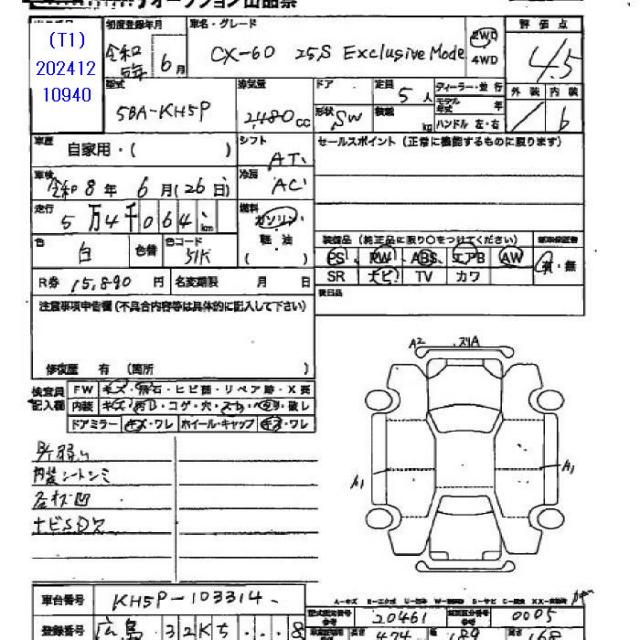 オークション出品票
(T1)
202412
10940
初度登録年月
令和5年 6月
車名・グレード
CX-60 25S Exclusive Mode
2WD
4WD
評価点
4.5
型式
5BA-KH5P
排気量
2,480cc
ドア
形状
SW
定員
5人
積載
kg
ディーラー・並行
モデル年式 年
ハンドル 左・右
外装 内装
/ b
車歴
自家用・( )
シフト
AT
セールスポイント(正常に機能するものに限ります)
車検
令和8年 6月(26日)
冷房
AC
走行
5万4千064km
燃料
ガソリン
軽油
( )
色
白
色替
色コード
51K
装備品(純正品に限り○をつけてください)
PS PW ABS エアB AW
SR ナビ TV カワ
有・無
後日品
R券 15,890円
名変期限 月 日
注意事項申告欄(不具合内容等は具体的に記入して下さい)
修復歴 有(箇所 )
検査員記入欄
FW キズ・飛石・ヒビ割・リペア跡・X要
内装 キズ・汚れ・コゲ・穴・スレ・ベタリ・破レ
ドアミラー キズ・ワレ ホイール・キャップ キズ・ワレ
内装シートシミ
ナビSDカ
A2
スリA
A1
A1
車台番号
KH5P-103314
登録番号
広島 325 ... 8
20461
0005
474
189
168